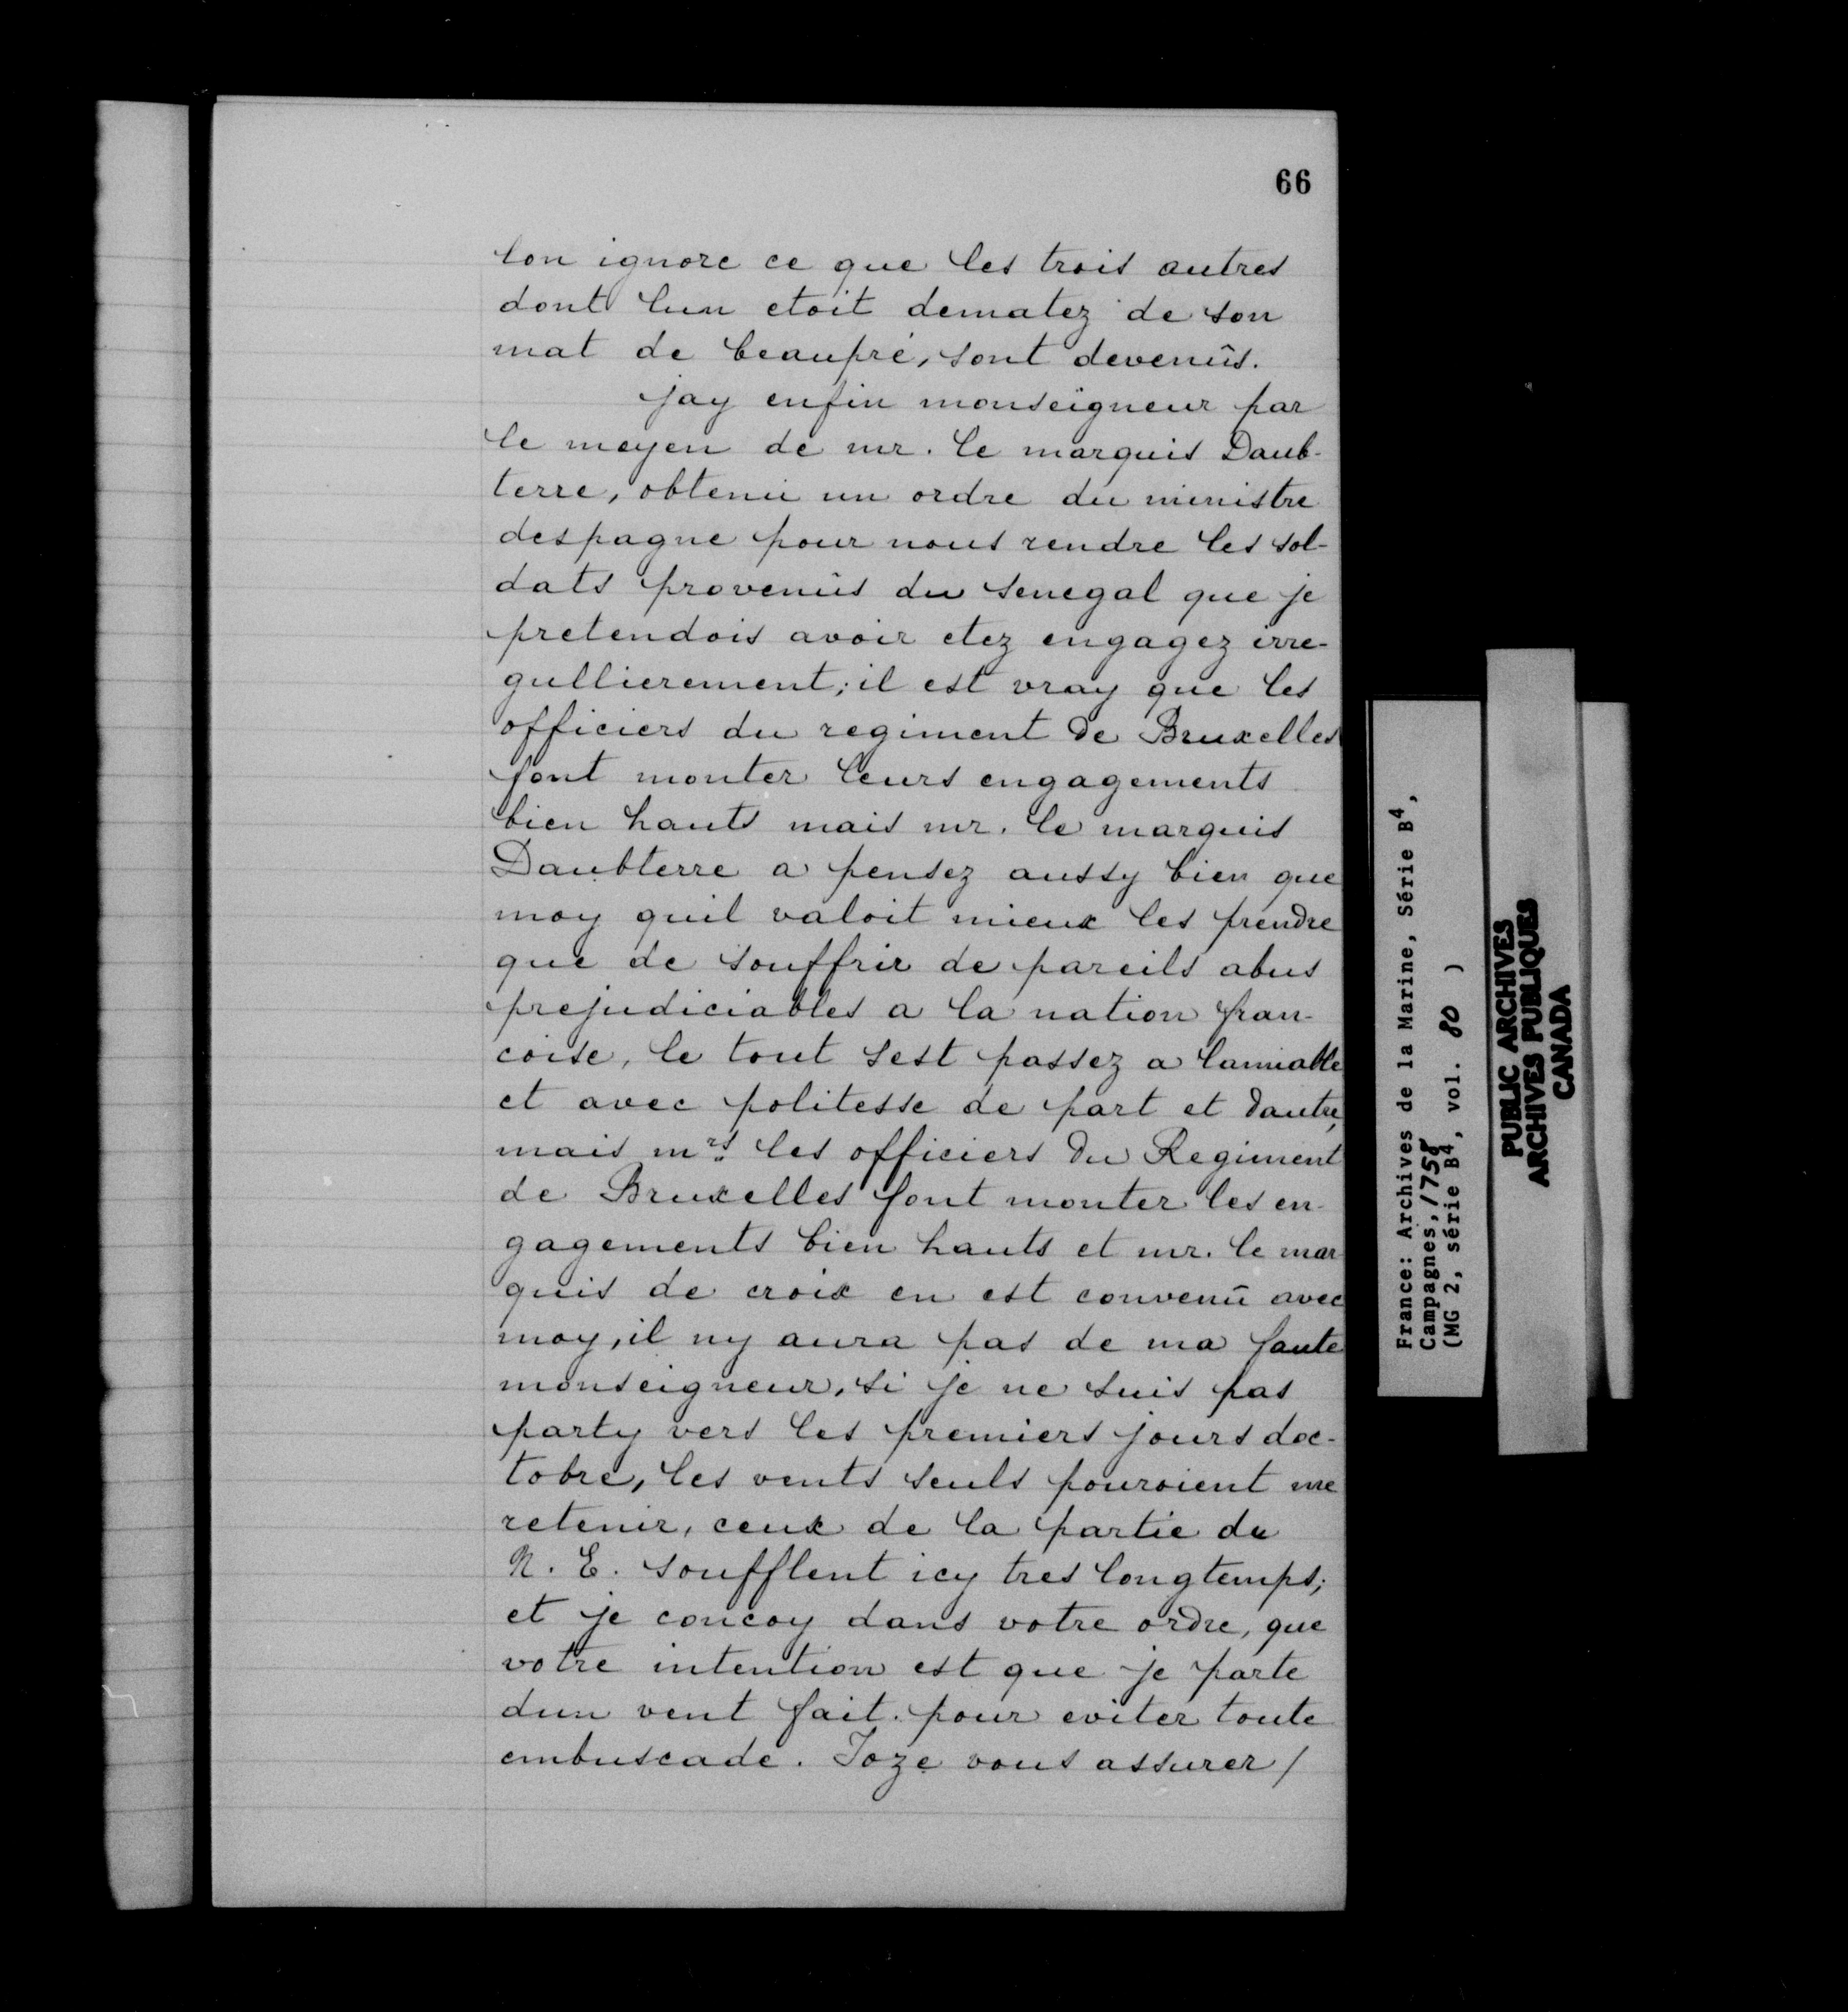 66
lon ignore ce que les trois autres
dont lun etoit dematez de son
mat de beaupré, sont devenûs.
jay enfin monseigneur par
le moyen de mr. le marquis Daub-
terre, obtenu un ordre du ministre
despagne pour nous rendre les sol-
dats provenûs du senegal que je
pretendois avoir etez engagez irre-
gullierement; il est vray que les
officiers du regiment de Bruxelles
font monter leurs engagements
bien hauts mais mr. le marquis
Daubterre a pensez aussy bien que
moy quil valoit mieux les prendre
que de souffrir de pareils abus
prejudiciables a la nation fran-
coise, le tout sest passez a lamiable
et avec politesse de part et dautre,
mais mrs. les officiers du Regiment
de Bruxelles font monter les en-
gagements bien hauts et mr. le mar
quis de croix en est convenû avec
moy, il ny aura pas de ma faute
monseigneur, si je ne suis pas
party vers les premiers jours doc-
tobre, les vents seuls pouroient me
retenir, ceux de la partie du
N. E. soufflent icy tres longtemps;
et je concoy dans votre ordre, que
votre intention est que je parte
dun vent fait. pour eviter toute
embuscade. Joze vous assurer /
France: Archives de la Marine, Série B4,
Campagnes, 1758
(MG 2, série B4, vol. 80 )
PUBLIC ARCHIVES
ARCHIVES PUBLIQUES
CANADA